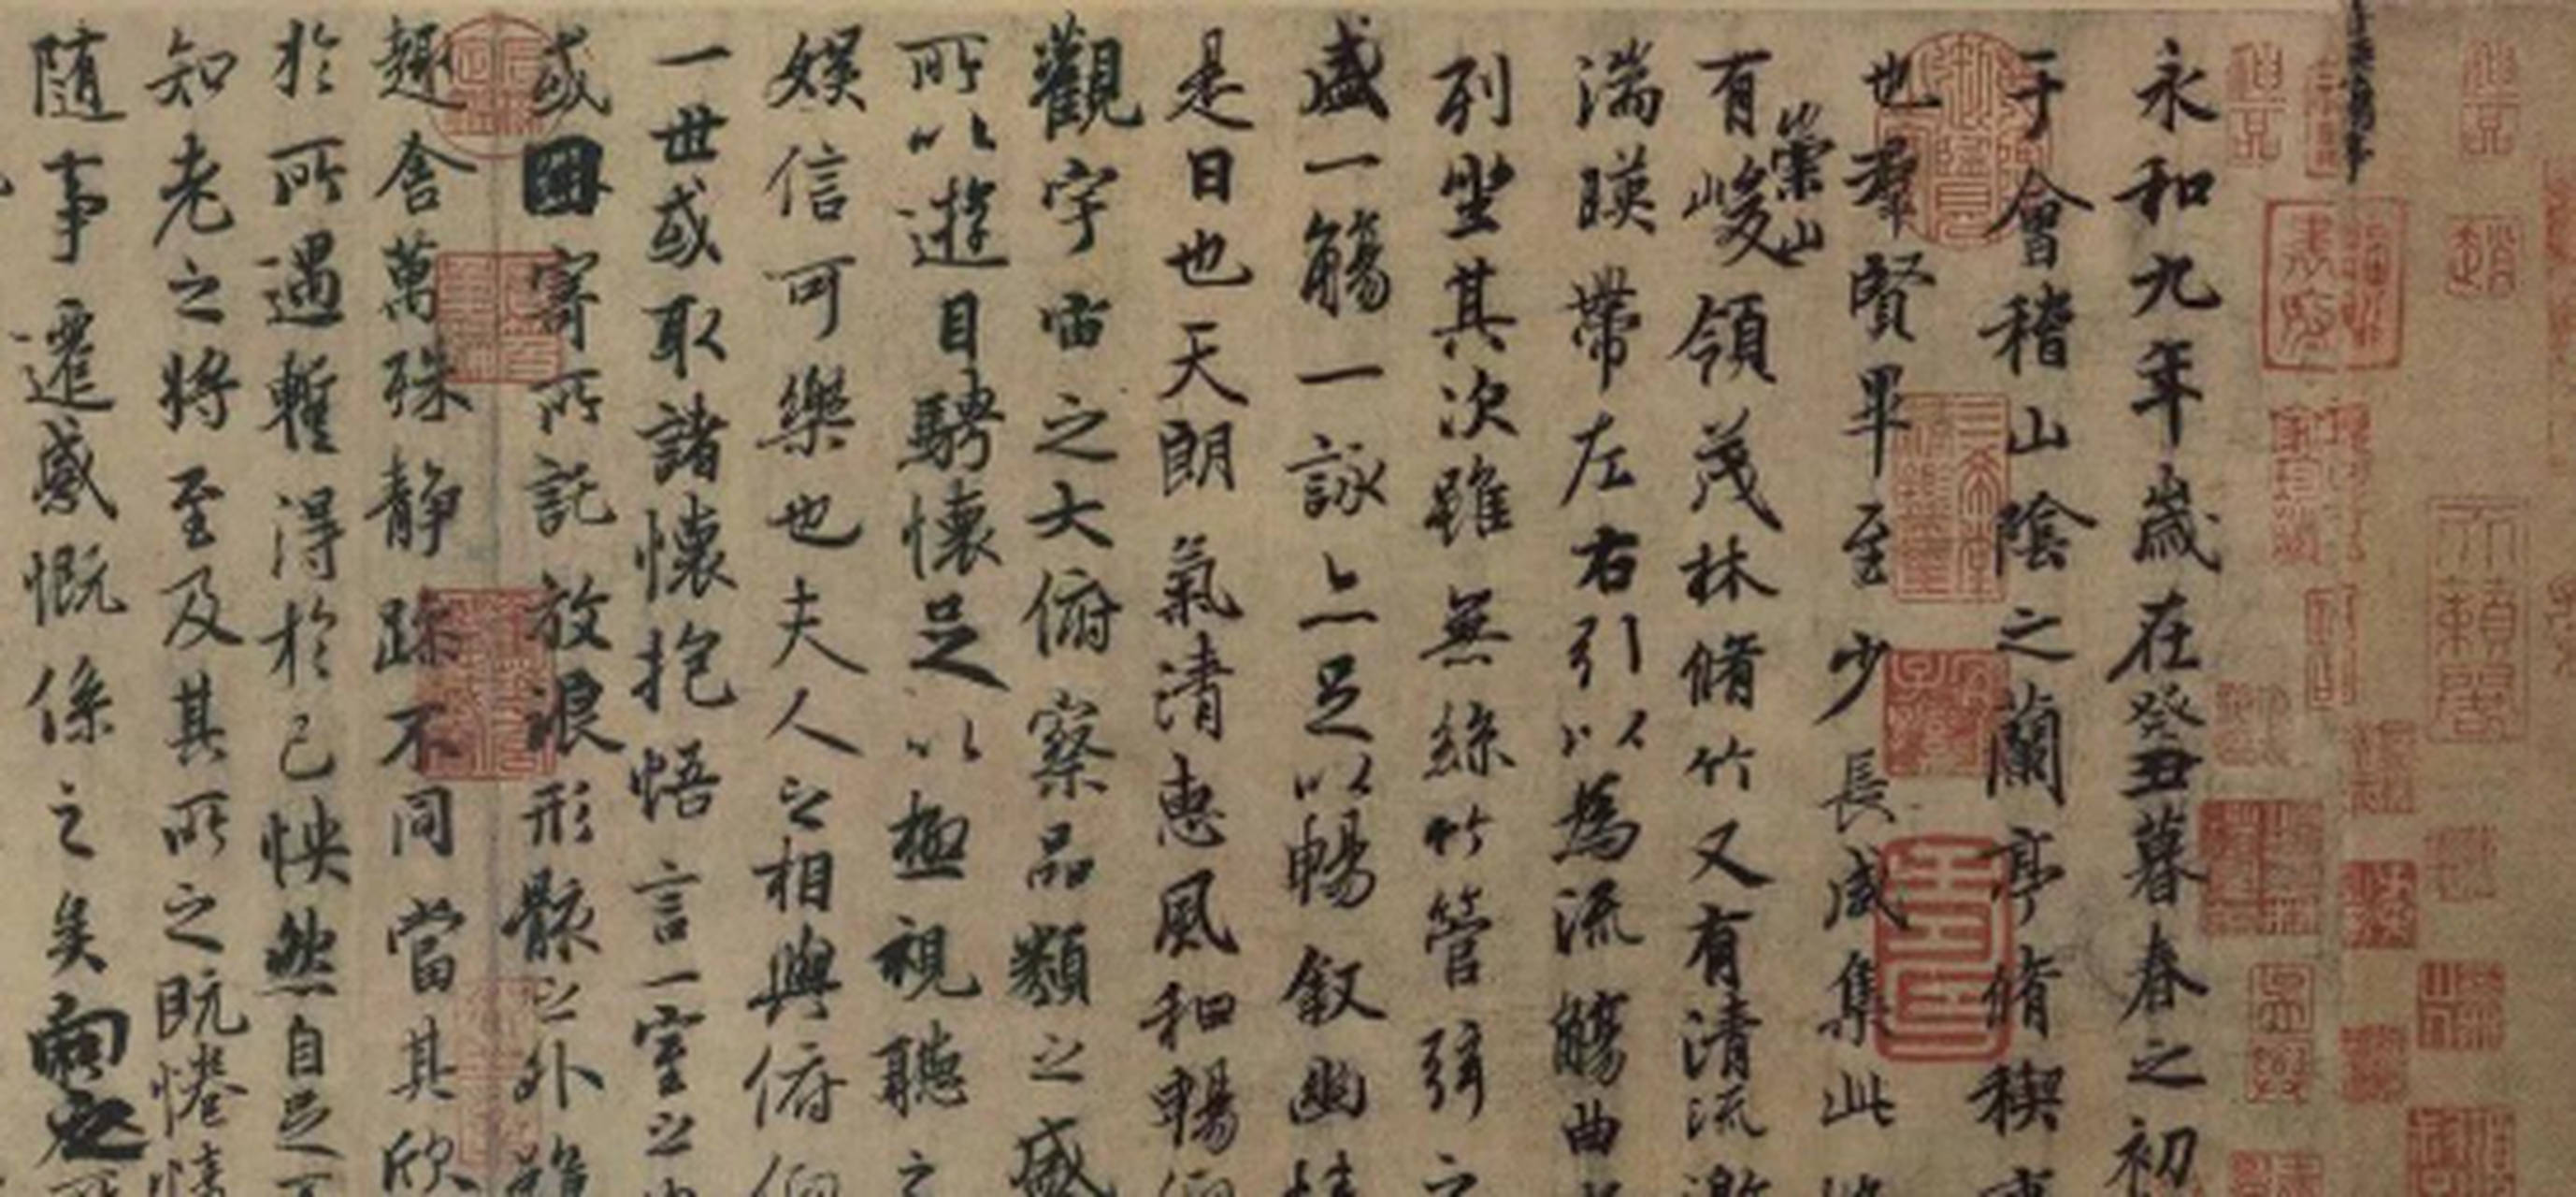 永和九年歲在癸丑暮春之初
于會稽山陰之蘭亭脩禊事
也羣賢畢至少長咸集此
崇山
有峻領茂林脩竹又有清流激
湍暎帶左右引以為流觴曲
列坐其次雖無絲竹管弦之
盛一觴一詠亦足以暢叙幽情
是日也天朗氣清惠風和暢仰
觀宇宙之大俯察品類之盛
所以遊目騁懷足以極視聽之
娛信可樂也夫人之相與俯仰
一世或取諸懷抱悟言一室之內
或因寄所託放浪形骸之外雖
趣舍萬殊靜躁不同當其欣
於所遇暫得於己怏然自足不
知老之將至及其所之既惓情
隨事遷感慨係之矣向之所
天籟閣